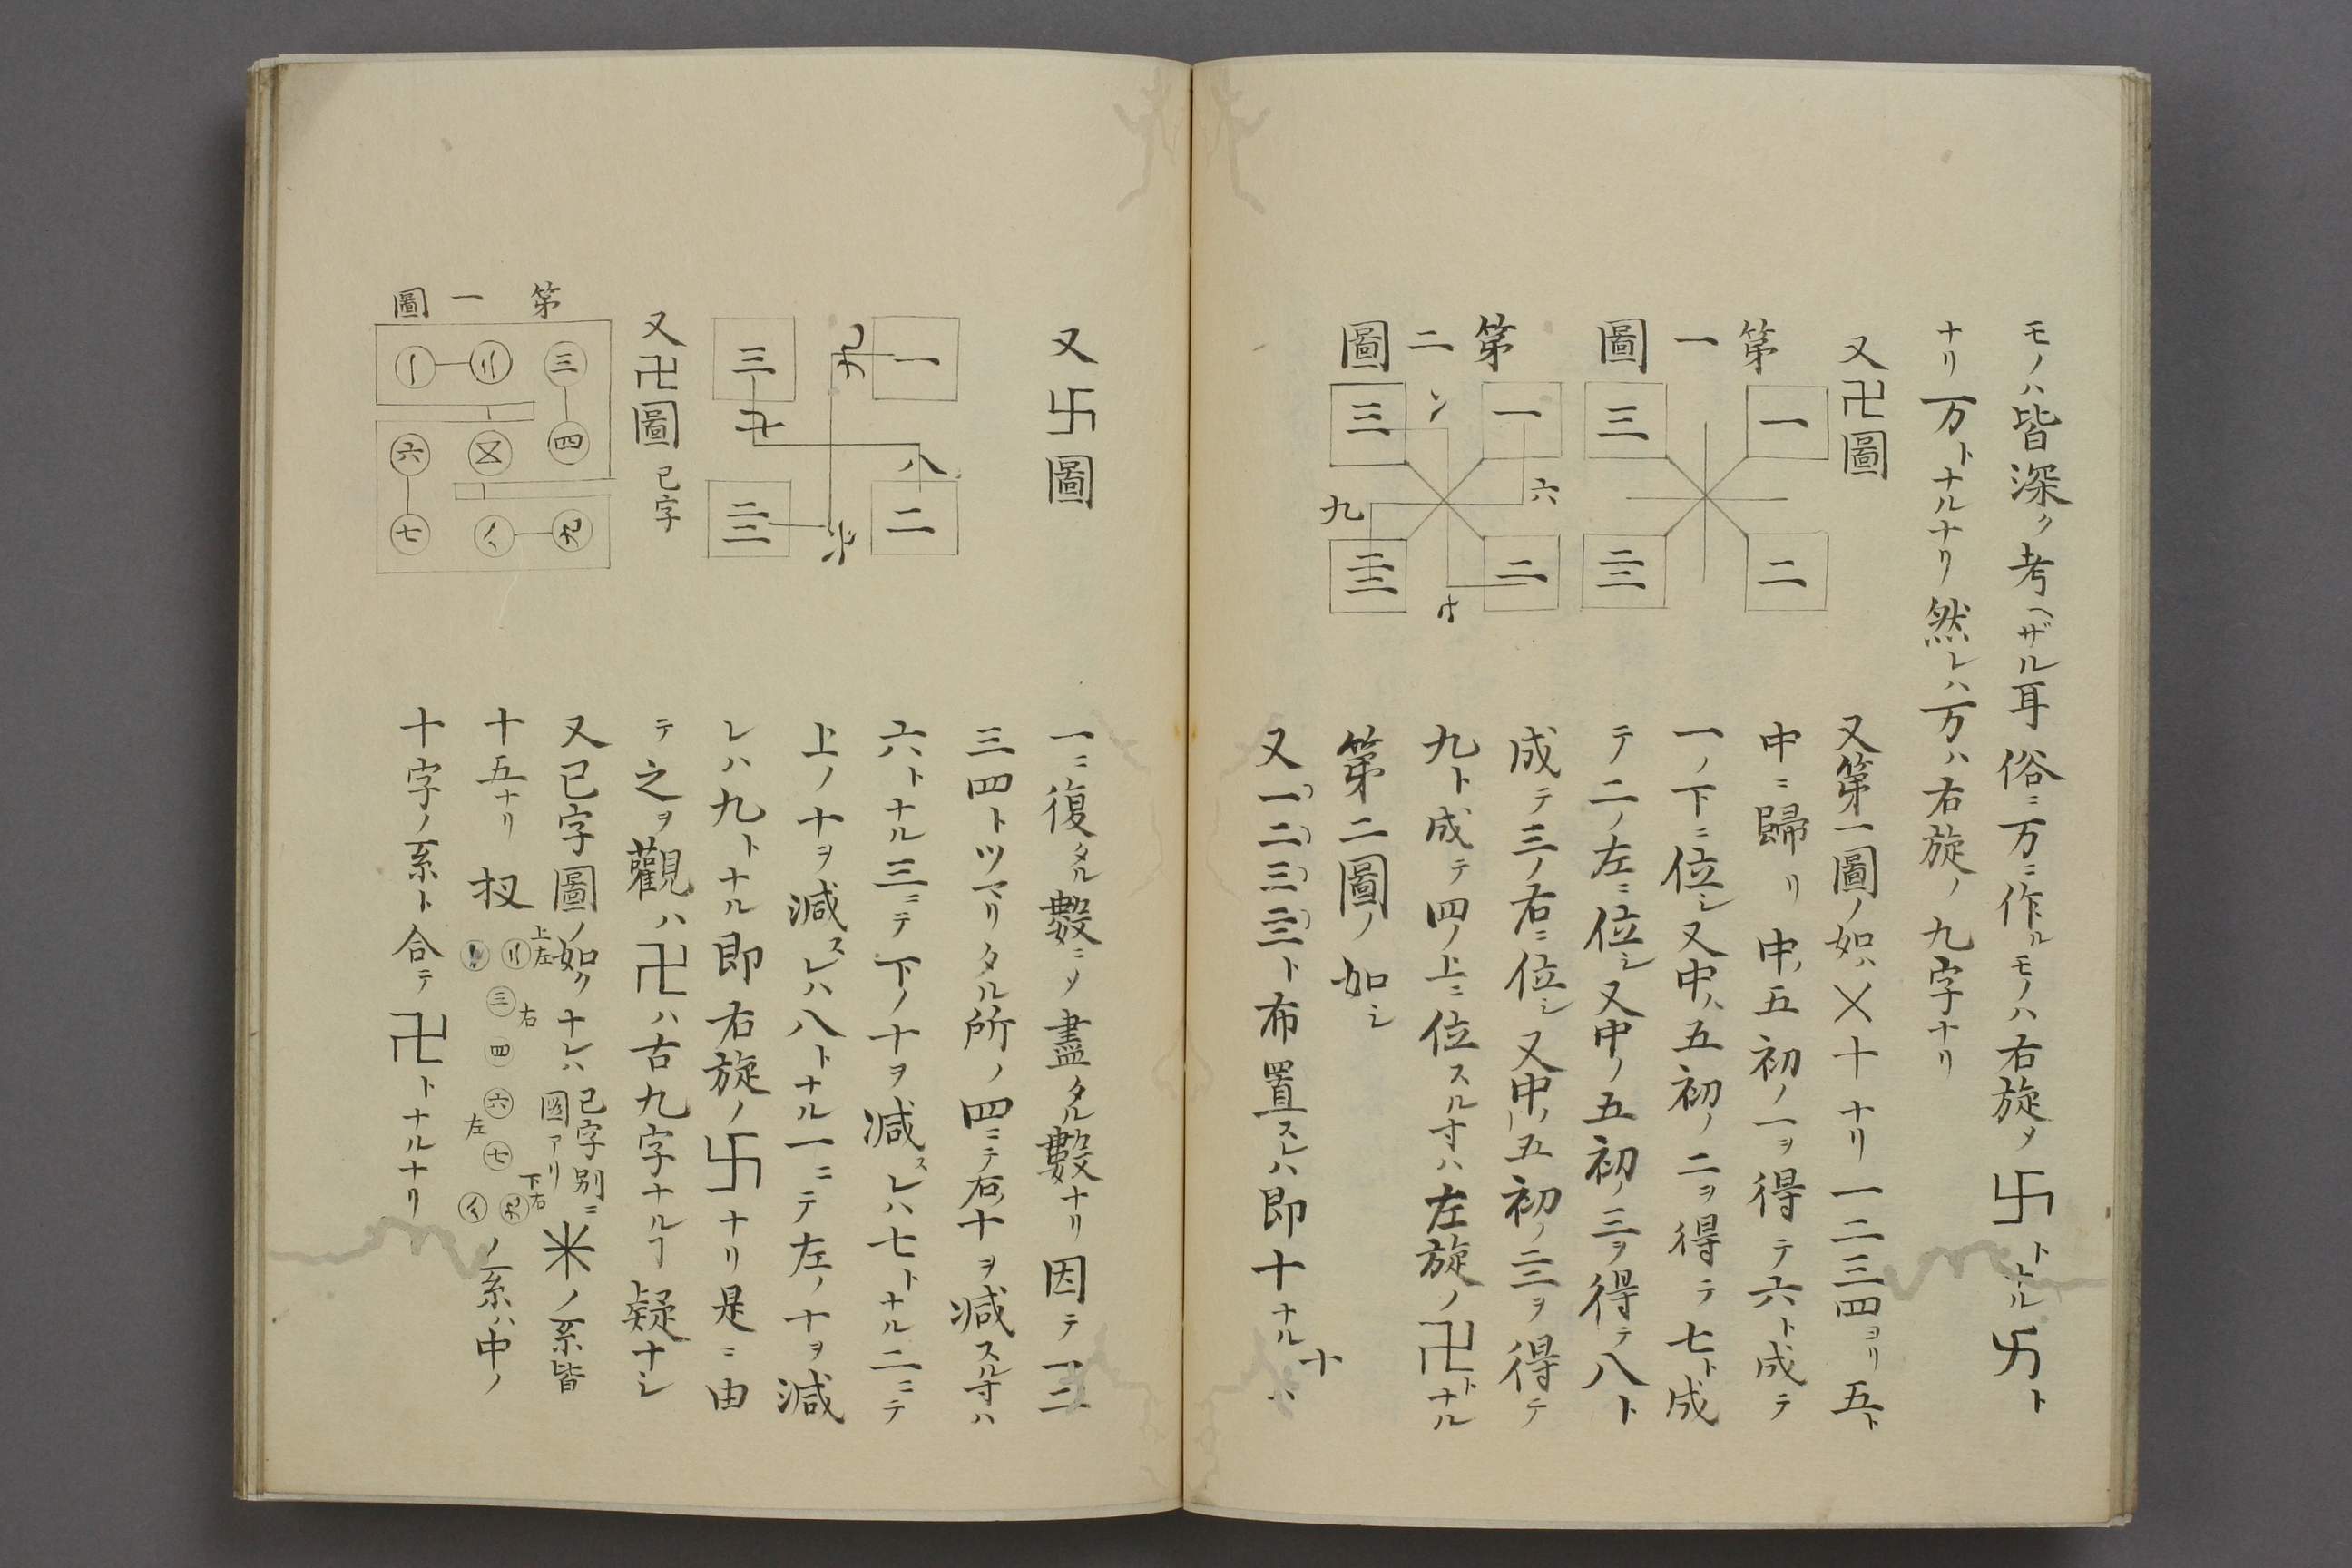 モノハ皆深ク考ヘザル耳俗ニ万ニ作ルモノハ右旋ノ卐トナル卐ト
ナリ万トナルナリ然レハ万ハ右旋ノ九字ナリ
又卍圖
第一圖
一
二
三
亖
第二圖
一
二
三
亖
六
九
又第一圖ノ如ハ乂十ナリ一二三四ヨリ五ト
中ニ歸リ中ノ五初ノ一ヲ得テ六ト成テ
一ノ下ニ位シ又中ノ五初ノ二ヲ得テ七ト成
テ二ノ左ニ位シ又中ノ五初ノ三ヲ得テ八ト
成テ三ノ右ニ位シ又中ノ五初ノ亖ヲ得テ
九ト成テ四ノ上ニ位スル寸ハ左旋ノ卍トナル
第二圖ノ如シ
又一二三亖ト布置スレハ即十ナル十ハ
又卐圖
一
二
三
亖
八
一ニ復タル數ニノ盡タル數ナリ因テ一二
三四トツマリタル所ノ四ニテ右ノ十ヲ減スル寸ハ
六トナル三ニテ下ノ十ヲ減スレハ七トナル二ニテ
上ノ十ヲ減スレハ八トナル一ニテ左ノ十ヲ減
レハ九トナル即右旋ノ卐ナリ是ニ由
テ之ヲ觀ハ卍ハ古九字ナルヿ疑ナシ
又卍圖 已字
第一圖
三
四
六
七
又已字圖ノ如クナレハ已字別ニ圖アリ米ノ系皆
十五ナリ扠上左右三四六七左下右ノ系ハ中ノ
十字ノ系ト合テ卍トナルナリ